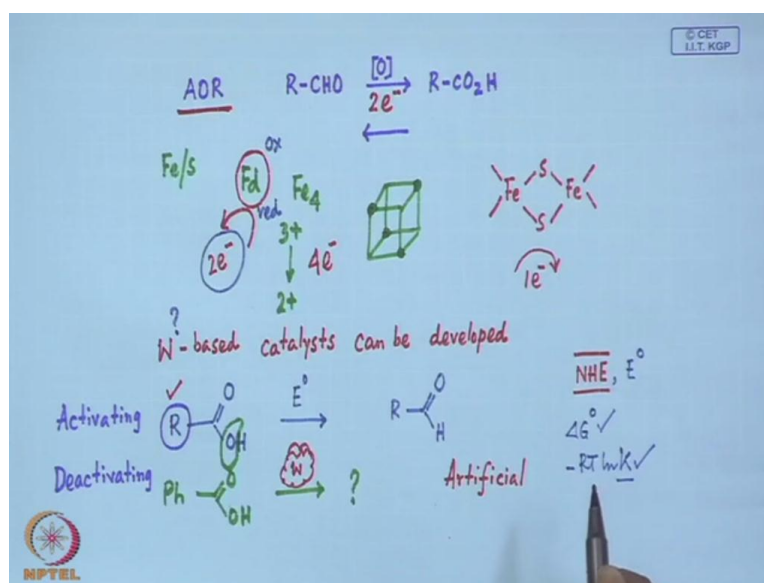 © CET
I.I.T. KGP
AOR R-CHO [O] 2e⁻ R-CO₂H
Fe/S Fd ox red 2e⁻
Fe₄ 3+ 4e⁻ 2+
S Fe Fe S
1e⁻
?
W-based catalysts can be developed
NHE, E⁰
Activating R O OH E⁰ R O H
ΔG⁰
Deactivating Ph O OH W ? Artificial
-RT ln K
NPTEL